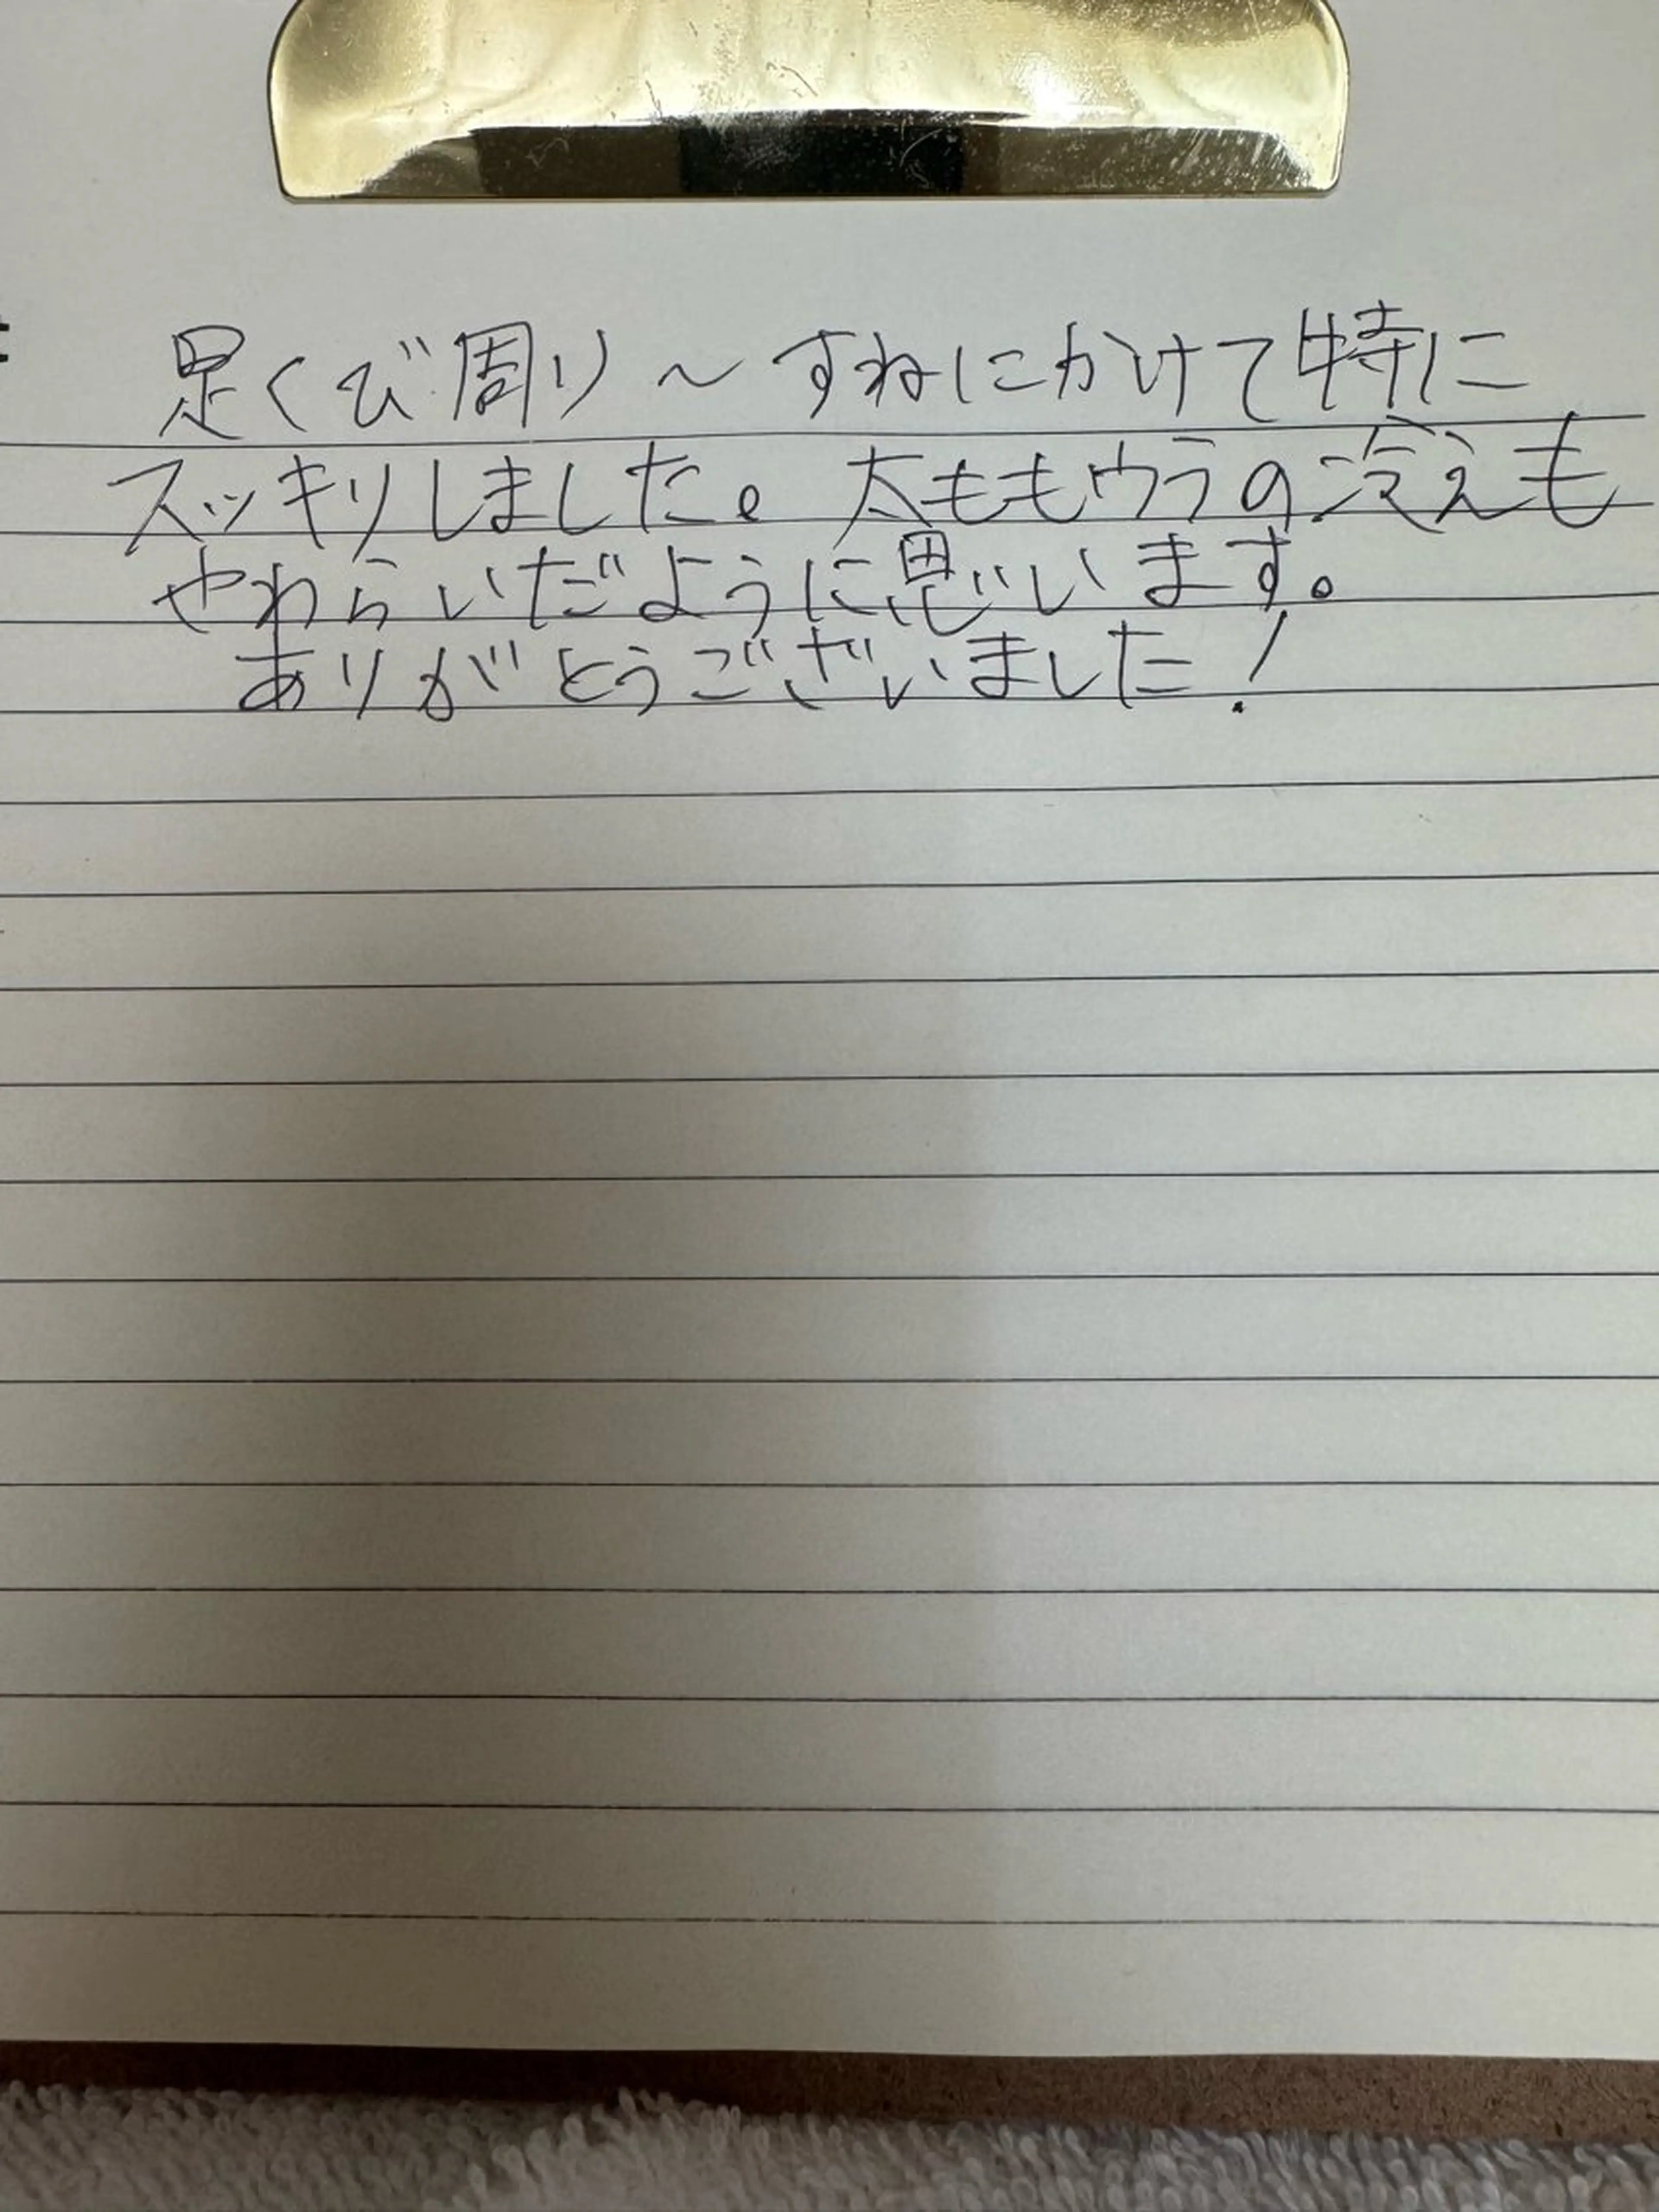 足くび周り〜すねにかけて特に
スッキリしました。太ももウラの冷えも
やわらいだように思います。
ありがとうございました!